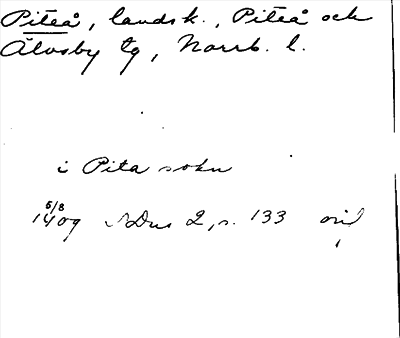 Piteå, landsk., Piteå och
Älvsby tg, Norrb. l.
i Pita sokn
5/8
1409 SDns 2, s. 133 orig